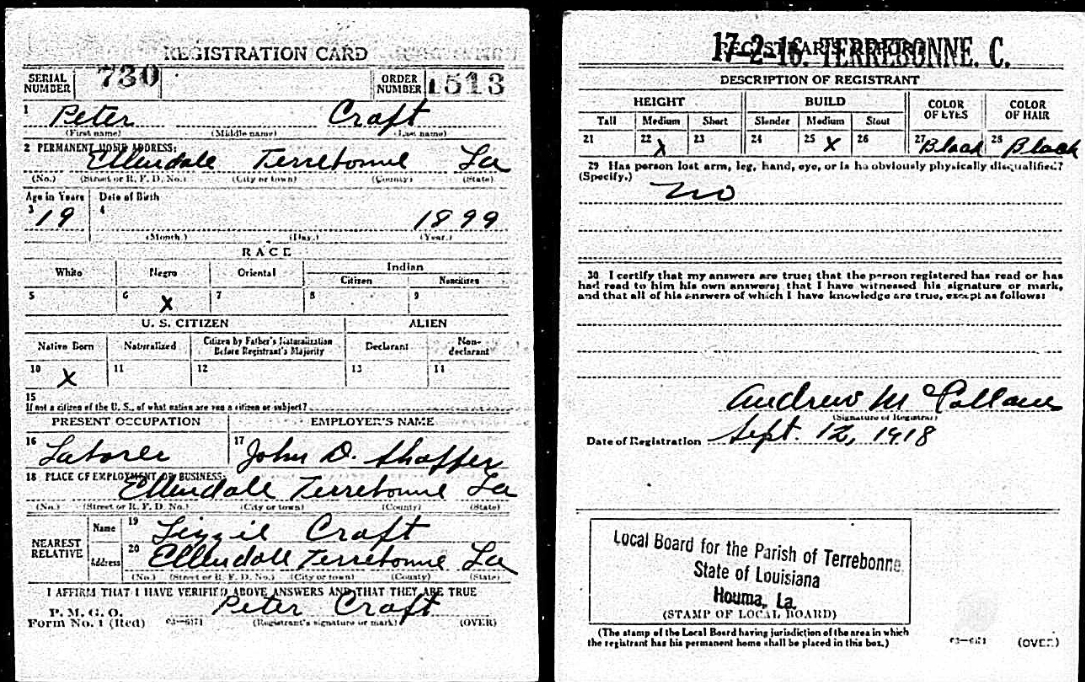 REGISTRATION CARD
SERIAL NUMBER 730 ORDER NUMBER 1513
1 Peter Craft
(First name) (Middle name) (Last name)
2 PERMANENT HOME ADDRESS:
Ellendale Terrebonne La
(No.) (Street or R. F. D. No.) (City or town) (County) (State)
Age in Years Date of Birth
3 19 4 1899
(Month.) (Day.) (Year.)
RACE
White Negro Oriental Indian
Citizen Noncitizen
5 6 X 7 8 9
U. S. CITIZEN ALIEN
Native Born Naturalized Citizen by Father's Naturalization Before Registrant's Majority Declarant Non-declarant
10 X 11 12 13 14
15
If not a citizen of the U. S., of what nation are you a citizen or subject?
PRESENT OCCUPATION EMPLOYER'S NAME
16 Laborer 17 John D. Shaffer
18 PLACE OF EMPLOYMENT OR BUSINESS:
Ellendale Terrebonne La
(No.) (Street or R. F. D. No.) (City or town) (County) (State)
NEAREST RELATIVE Name 19 Lizzie Craft
Address 20 Ellendale Terrebonne La
(No.) (Street or R. F. D. No.) (City or town) (County) (State)
I AFFIRM THAT I HAVE VERIFIED ABOVE ANSWERS AND THAT THEY ARE TRUE
P. M. G. O.
Form No. 1 (Red) 03—6171 Peter Craft
(Registrant's signature or mark) (OVER)
17-2-16. TERREBONNE. C.
REGISTRAR'S REPORT
DESCRIPTION OF REGISTRANT
HEIGHT BUILD COLOR OF EYES COLOR OF HAIR
Tall Medium Short Slender Medium Stout
21 22 X 23 24 25 X 26 27 Black 28 Black
29 Has person lost arm, leg, hand, eye, or is he obviously physically disqualified?
(Specify.)
no
30 I certify that my answers are true; that the person registered has read or has
had read to him his own answers; that I have witnessed his signature or mark,
and that all of his answers of which I have knowledge are true, except as follows:
Andrew M
(Signature of Registrar)
Date of Registration Sept. 12, 1918
Local Board for the Parish of Terrebonne
State of Louisiana
Houma, La.
(STAMP OF LOCAL BOARD)
(The stamp of the Local Board having jurisdiction of the area in which
the registrant has his permanent home shall be placed in this box.)
03—6171 (OVER)